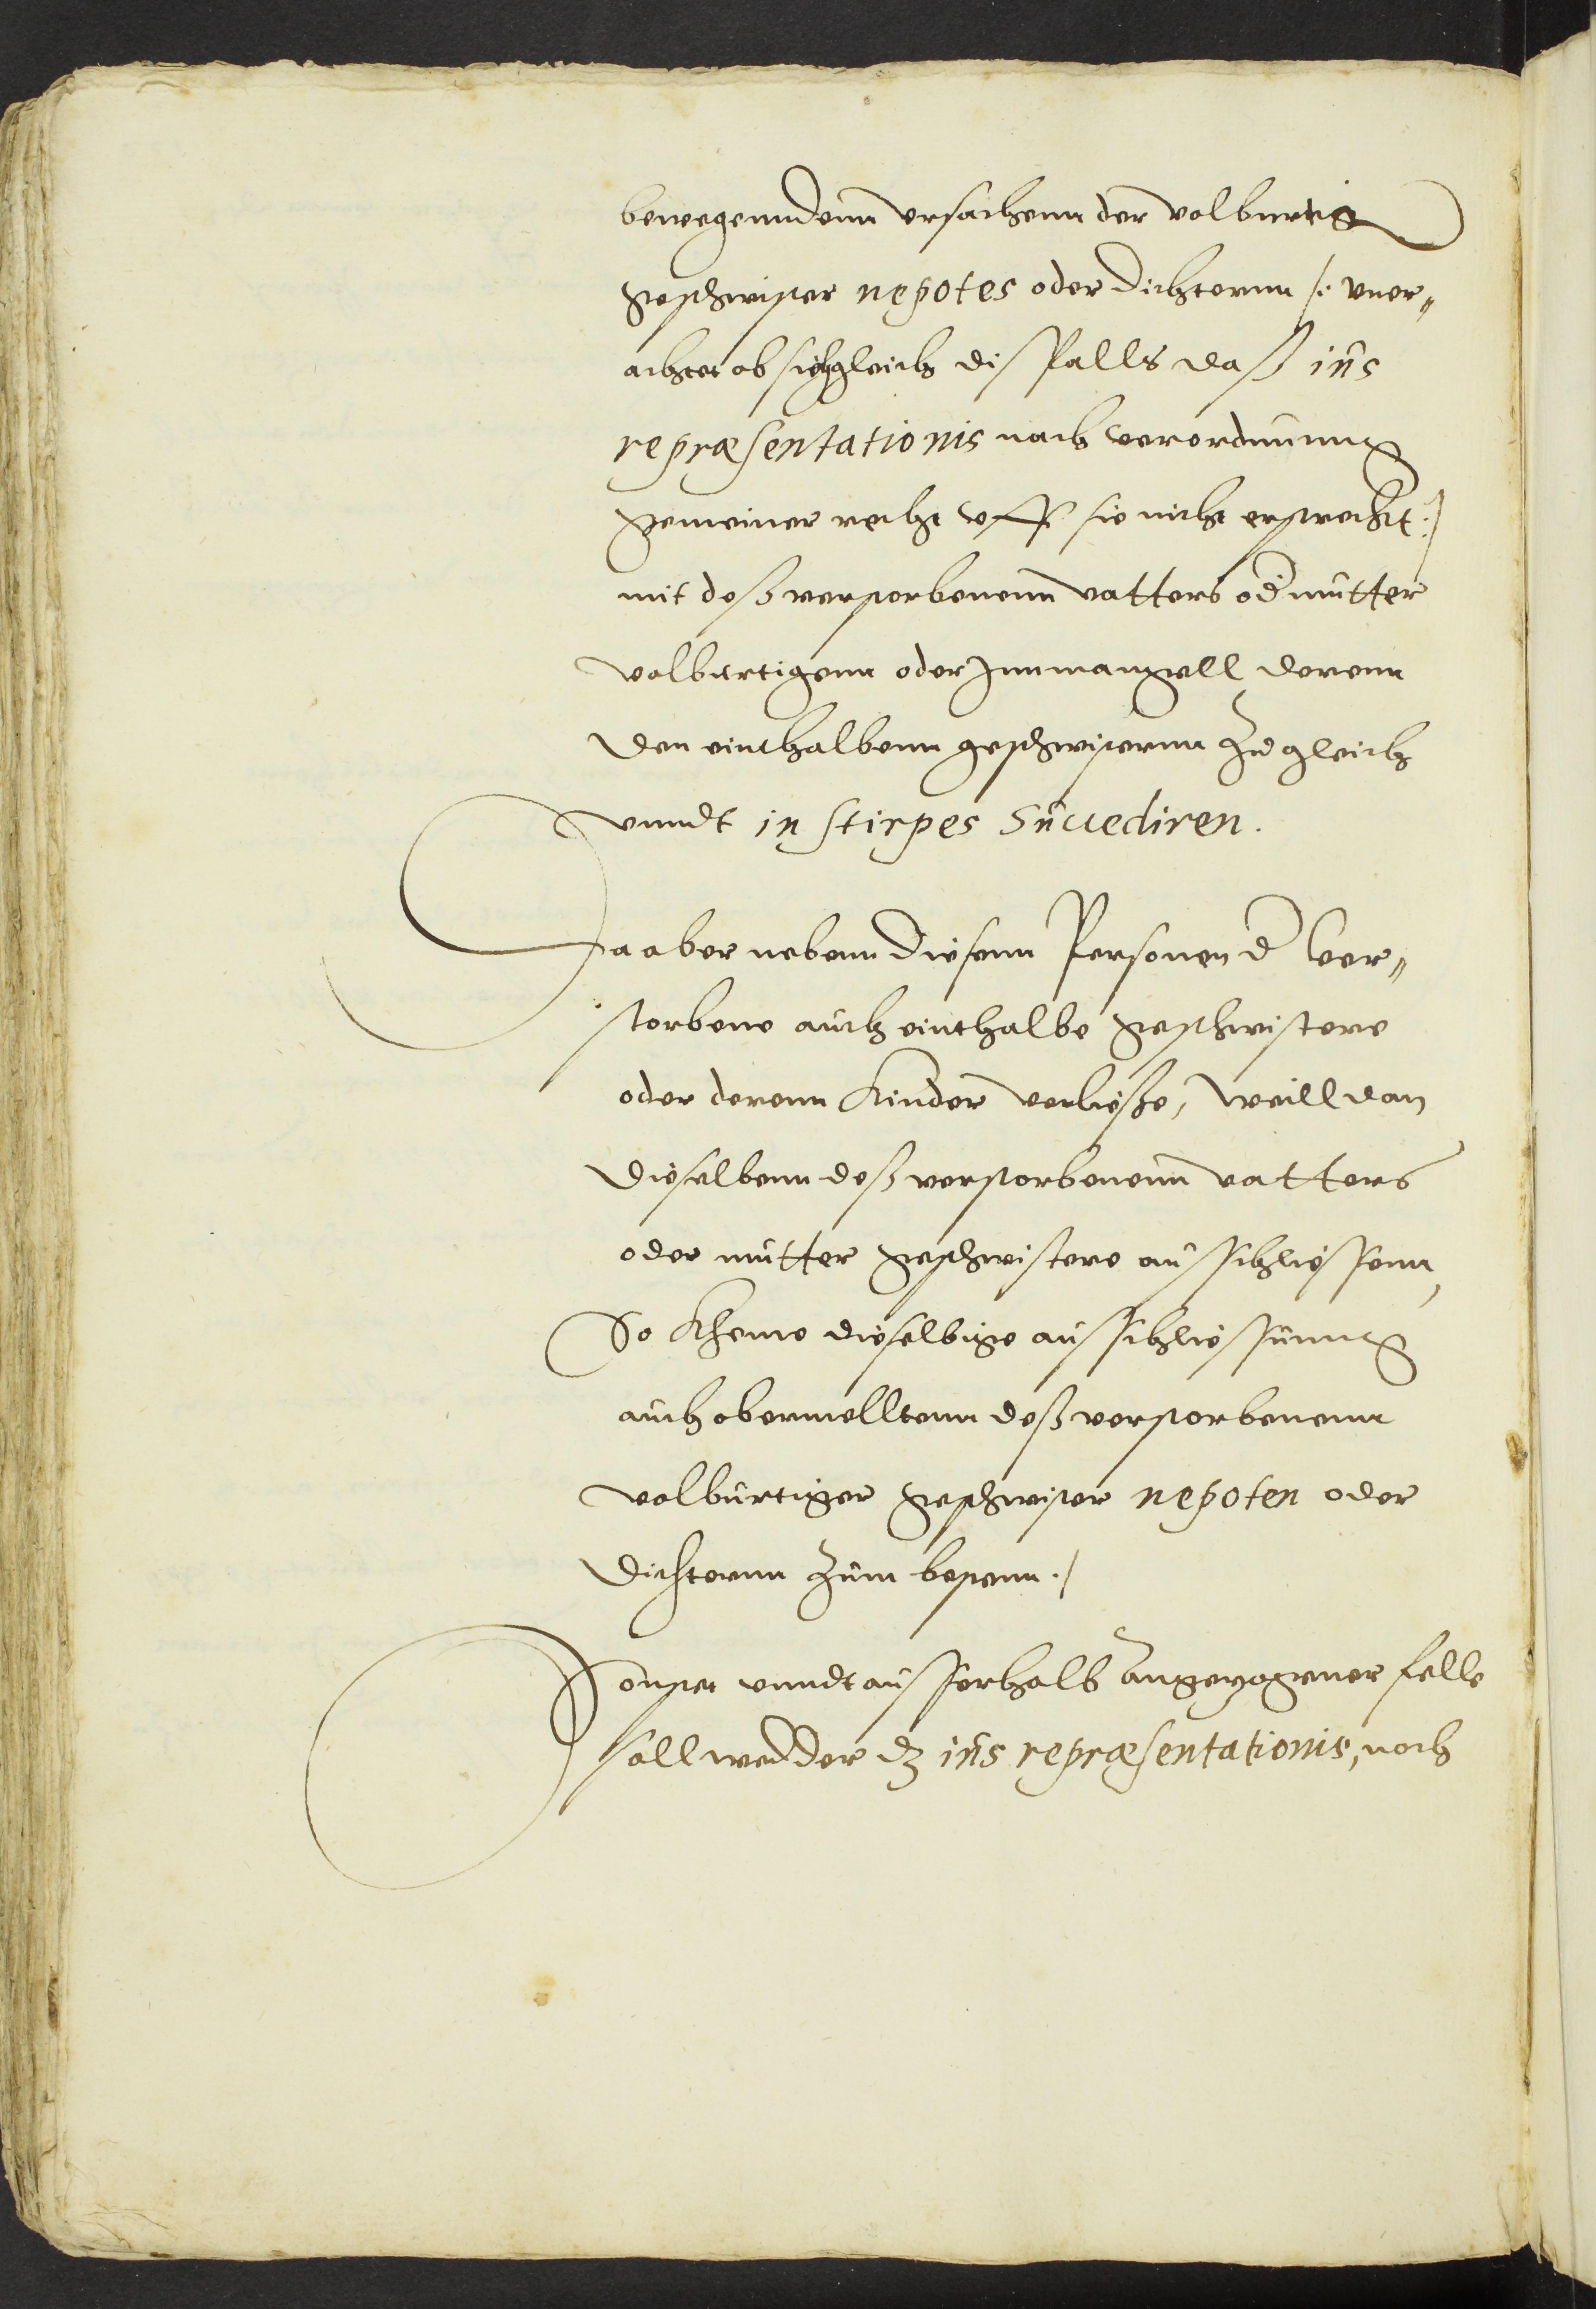 bewegenndenn ursachenn der volburtig
geschwister nepotes oder dichternn /: uner„
achtet ob sich gleich dis Falls daß ius
repræsentationis nach verordnunng
gemeiner recht vff sie nicht erstreckt :/
mit deß verstorbenenn vatters od mutter
volburtigenn oder Inn mangell derenn
den einthalbenn geschwisternn zu gleich
vnndt in stirpes Succediren.
Da aber nebenn diesenn Personen d Ver„
storbene auch einthalbe geschwistere
oder derenn Kinder verließe, weill dan
dieselbenn deß verstorbenenn vatters
oder mutter geschwistere ausschliessenn,
So Kheme dieselbige ausschliessunng
auch obermelltenn deß verstorbenenn
volburtiger geschwister nepoten oder
dichternn zum bestenn ./
Sonnst vnndt ausserhalb angezogener felle
soll wedder dz ius repræsentationis, noch